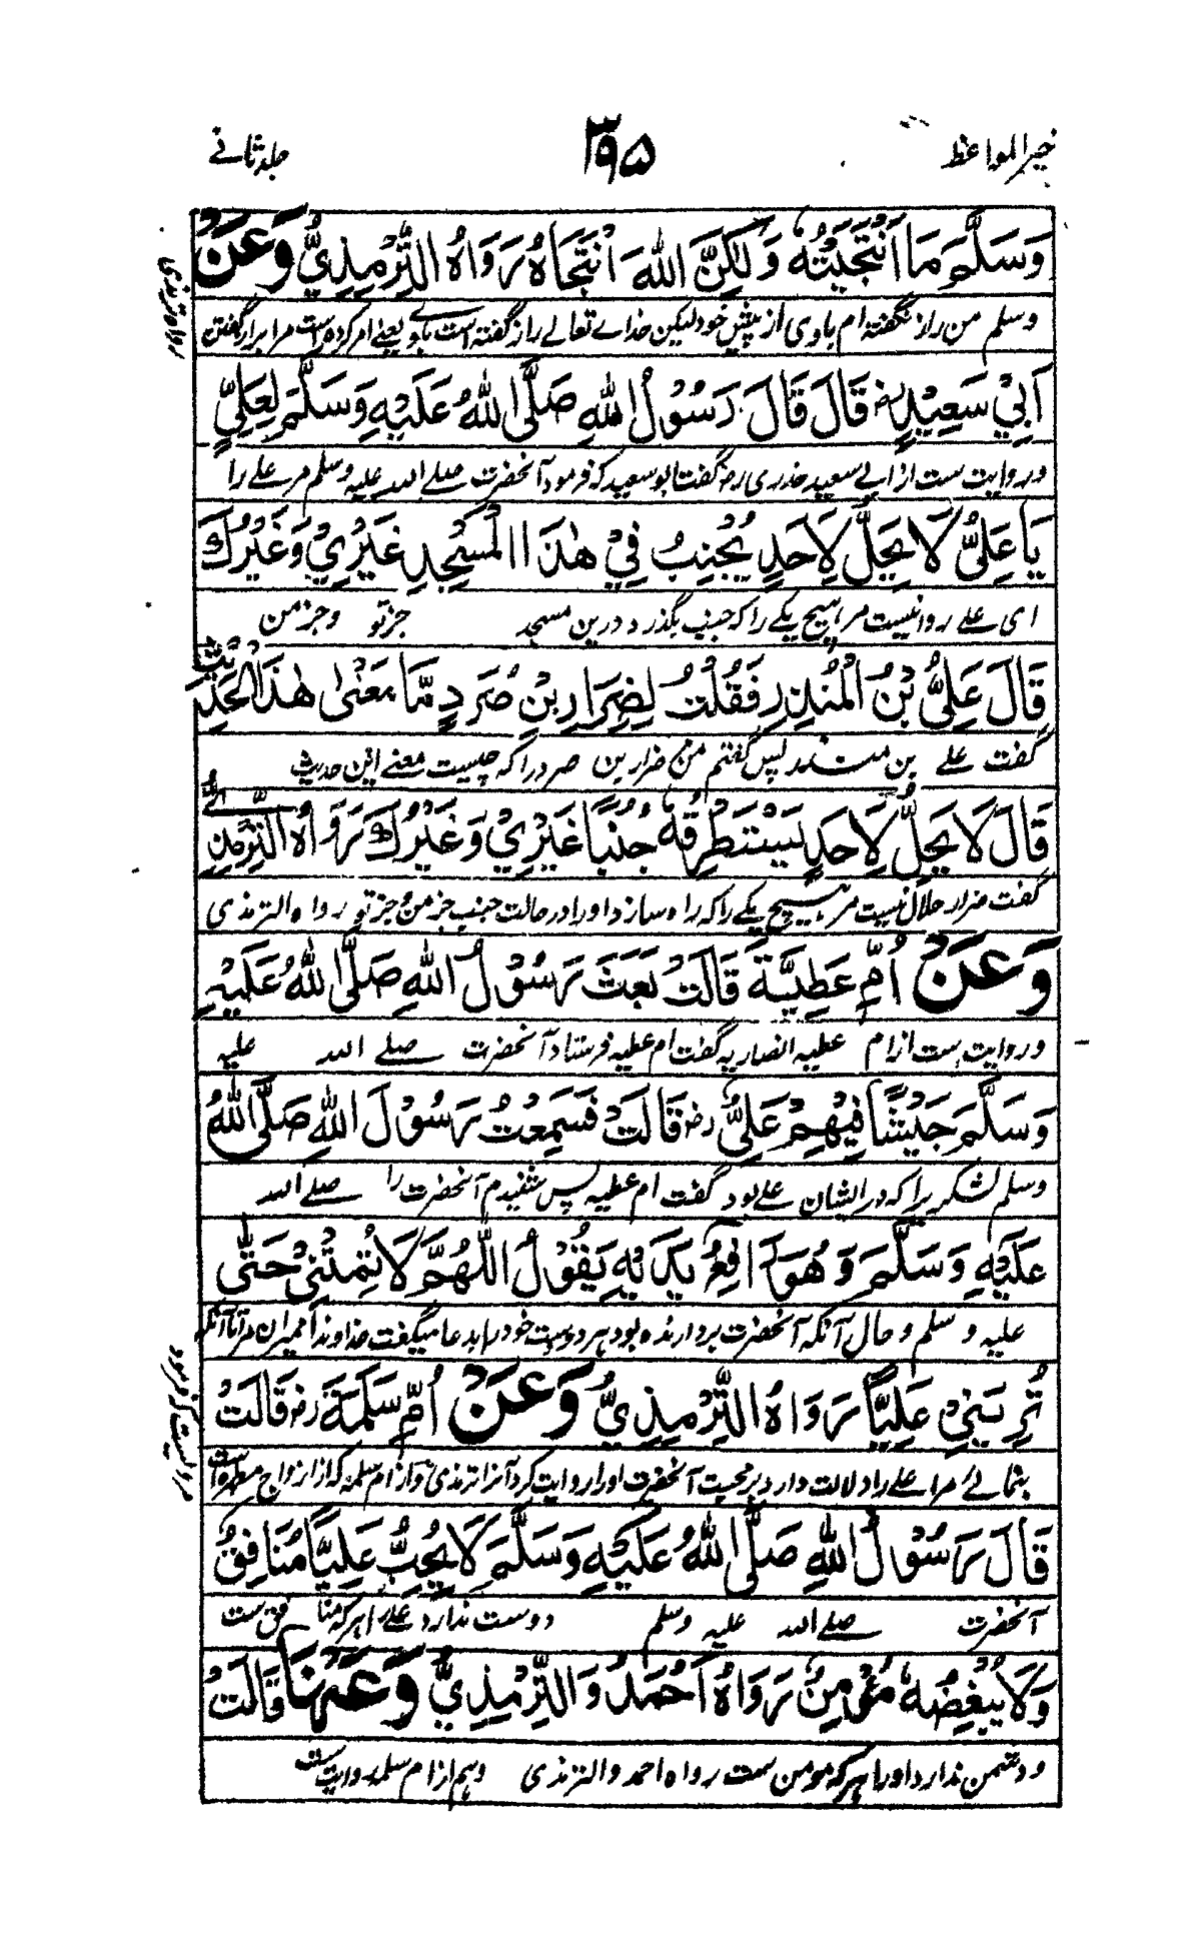 خیر المواعظ
۳۹۵
جلد ثانے
وَسَلَّمَ مَا انْتَجَيْتُهُ وَلٰكِنَّ اللهَ انْتَجَاهُ رَوَاهُ التِّرْمِذِيُّ وَعَنْ
وسلم من راز نگفته ام باوی از پیش خود لیکن خداے تعالے راز گفته است باوے یعنے امر کرده است مرا براز گفتن
رواه ترمذی
اَبِيْ سَعِيْدٍ رض قَالَ قَالَ رَسُوْلُ اللهِ صَلَّى اللهُ عَلَيْهِ وَسَلَّمَ لِعَلِيٍّ
وروایت ست از ابے سعید خدری رض گفت ابو سعید که فرمود آنحضرت صلے الله علیه وسلم مر علے را
يَا عَلِيُّ لَا يَحِلُّ لِاَحَدٍ يُجْنِبُ فِيْ هٰذَا الْمَسْجِدِ غَيْرِيْ وَغَيْرُكَ
ای علے روا نیست مر هیچ یکے را که جنب بگذرد درین مسجد جز تو وجز من
قَالَ عَلِيُّ بْنُ الْمُنْذِرِ فَقُلْتُ لِضِرَارِ بْنِ صُرَدٍ مَّا مَعْنٰى هٰذَا الْحَدِيْثِ
گفت علے بن منذر پس گفتم من ضرار بن صرد را که چیست معنے این حدیث
قَالَ لَا يَحِلُّ لِاَحَدٍ يَسْتَطْرِقُهُ جُنُبًا غَيْرِيْ وَغَيْرُكَ رَوَاهُ التِّرْمِذِيُّ
گفت ضرار حلال نیست مر هیچ یکے را که راه سازد او را در حالت جنب جز من وجز تو رواه الترمذی
وَعَنْ اُمِّ عَطِيَّةَ قَالَتْ بَعَثَ رَسُوْلُ اللهِ صَلَّى اللهُ عَلَيْهِ
وروایت ست از ام عطیه انصاریه گفت ام عطیه فرستاد آنحضرت صلے الله علیه
وَسَلَّمَ جَيْشًا فِيْهِمْ عَلِيٌّ رض قَالَتْ فَسَمِعْتُ رَسُوْلَ اللهِ صَلَّى اللهُ
وسلم لشکر یرا که در ایشان علے بود گفت ام عطیه پس شنیدم آنحضرت را صلے الله
عَلَيْهِ وَسَلَّمَ وَهُوَ رَافِعٌ يَدَيْهِ يَقُوْلُ اللّٰهُمَّ لَا تُمِتْنِيْ حَتّٰى
علیه وسلم وحال آنکه آنحضرت بردارنده بود هر دو دست خود را بدعا میگفت خداوندا ممیران مرا تا آنکه
تُرِيَنِيْ عَلِيًّا رَوَاهُ التِّرْمِذِيُّ وَعَنْ اُمِّ سَلَمَةَ رض قَالَتْ
بنمائے مرا علے را دلالت دارد بر محبت آنحضرت او را روایت کرد آنرا ترمذی واز ام سلمه که از ازواج مطهرات
روایت که فرمود
قَالَ رَسُوْلُ اللهِ صَلَّى اللهُ عَلَيْهِ وَسَلَّمَ لَا يُحِبُّ عَلِيًّا مُنَافِقٌ
آنحضرت صلے الله علیه وسلم دوست ندارد علے را هر که منافق ست
وَلَا يُبْغِضُهُ مُؤْمِنٌ رَوَاهُ اَحْمَدُ وَالتِّرْمِذِيُّ وَعَنْهَا قَالَتْ
ودشمن ندارد او را هر که مومن ست رواه احمد والترمذی وهم از ام سلمه روایت ست